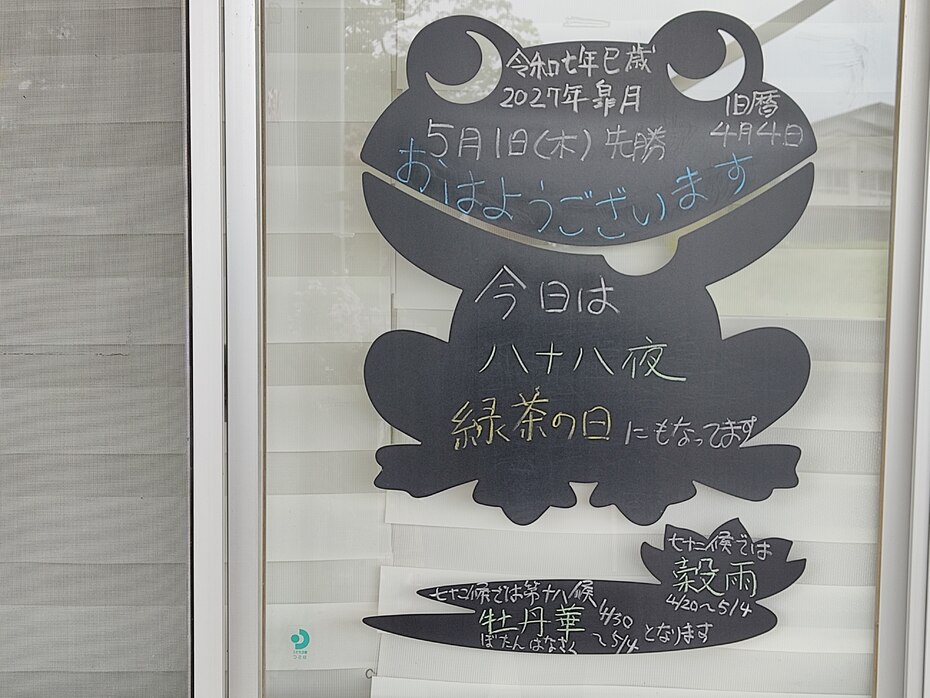 令和七年巳歳
2027年皐月
旧暦
4月4日
5月1日(木)先勝
おはようございます
今日は
八十八夜
緑茶の日にもなってます
七十二候では
穀雨
4/20〜5/4
七十二候では第十八候
牡丹華 4/30〜5/4 となります
ぼたんはなさく